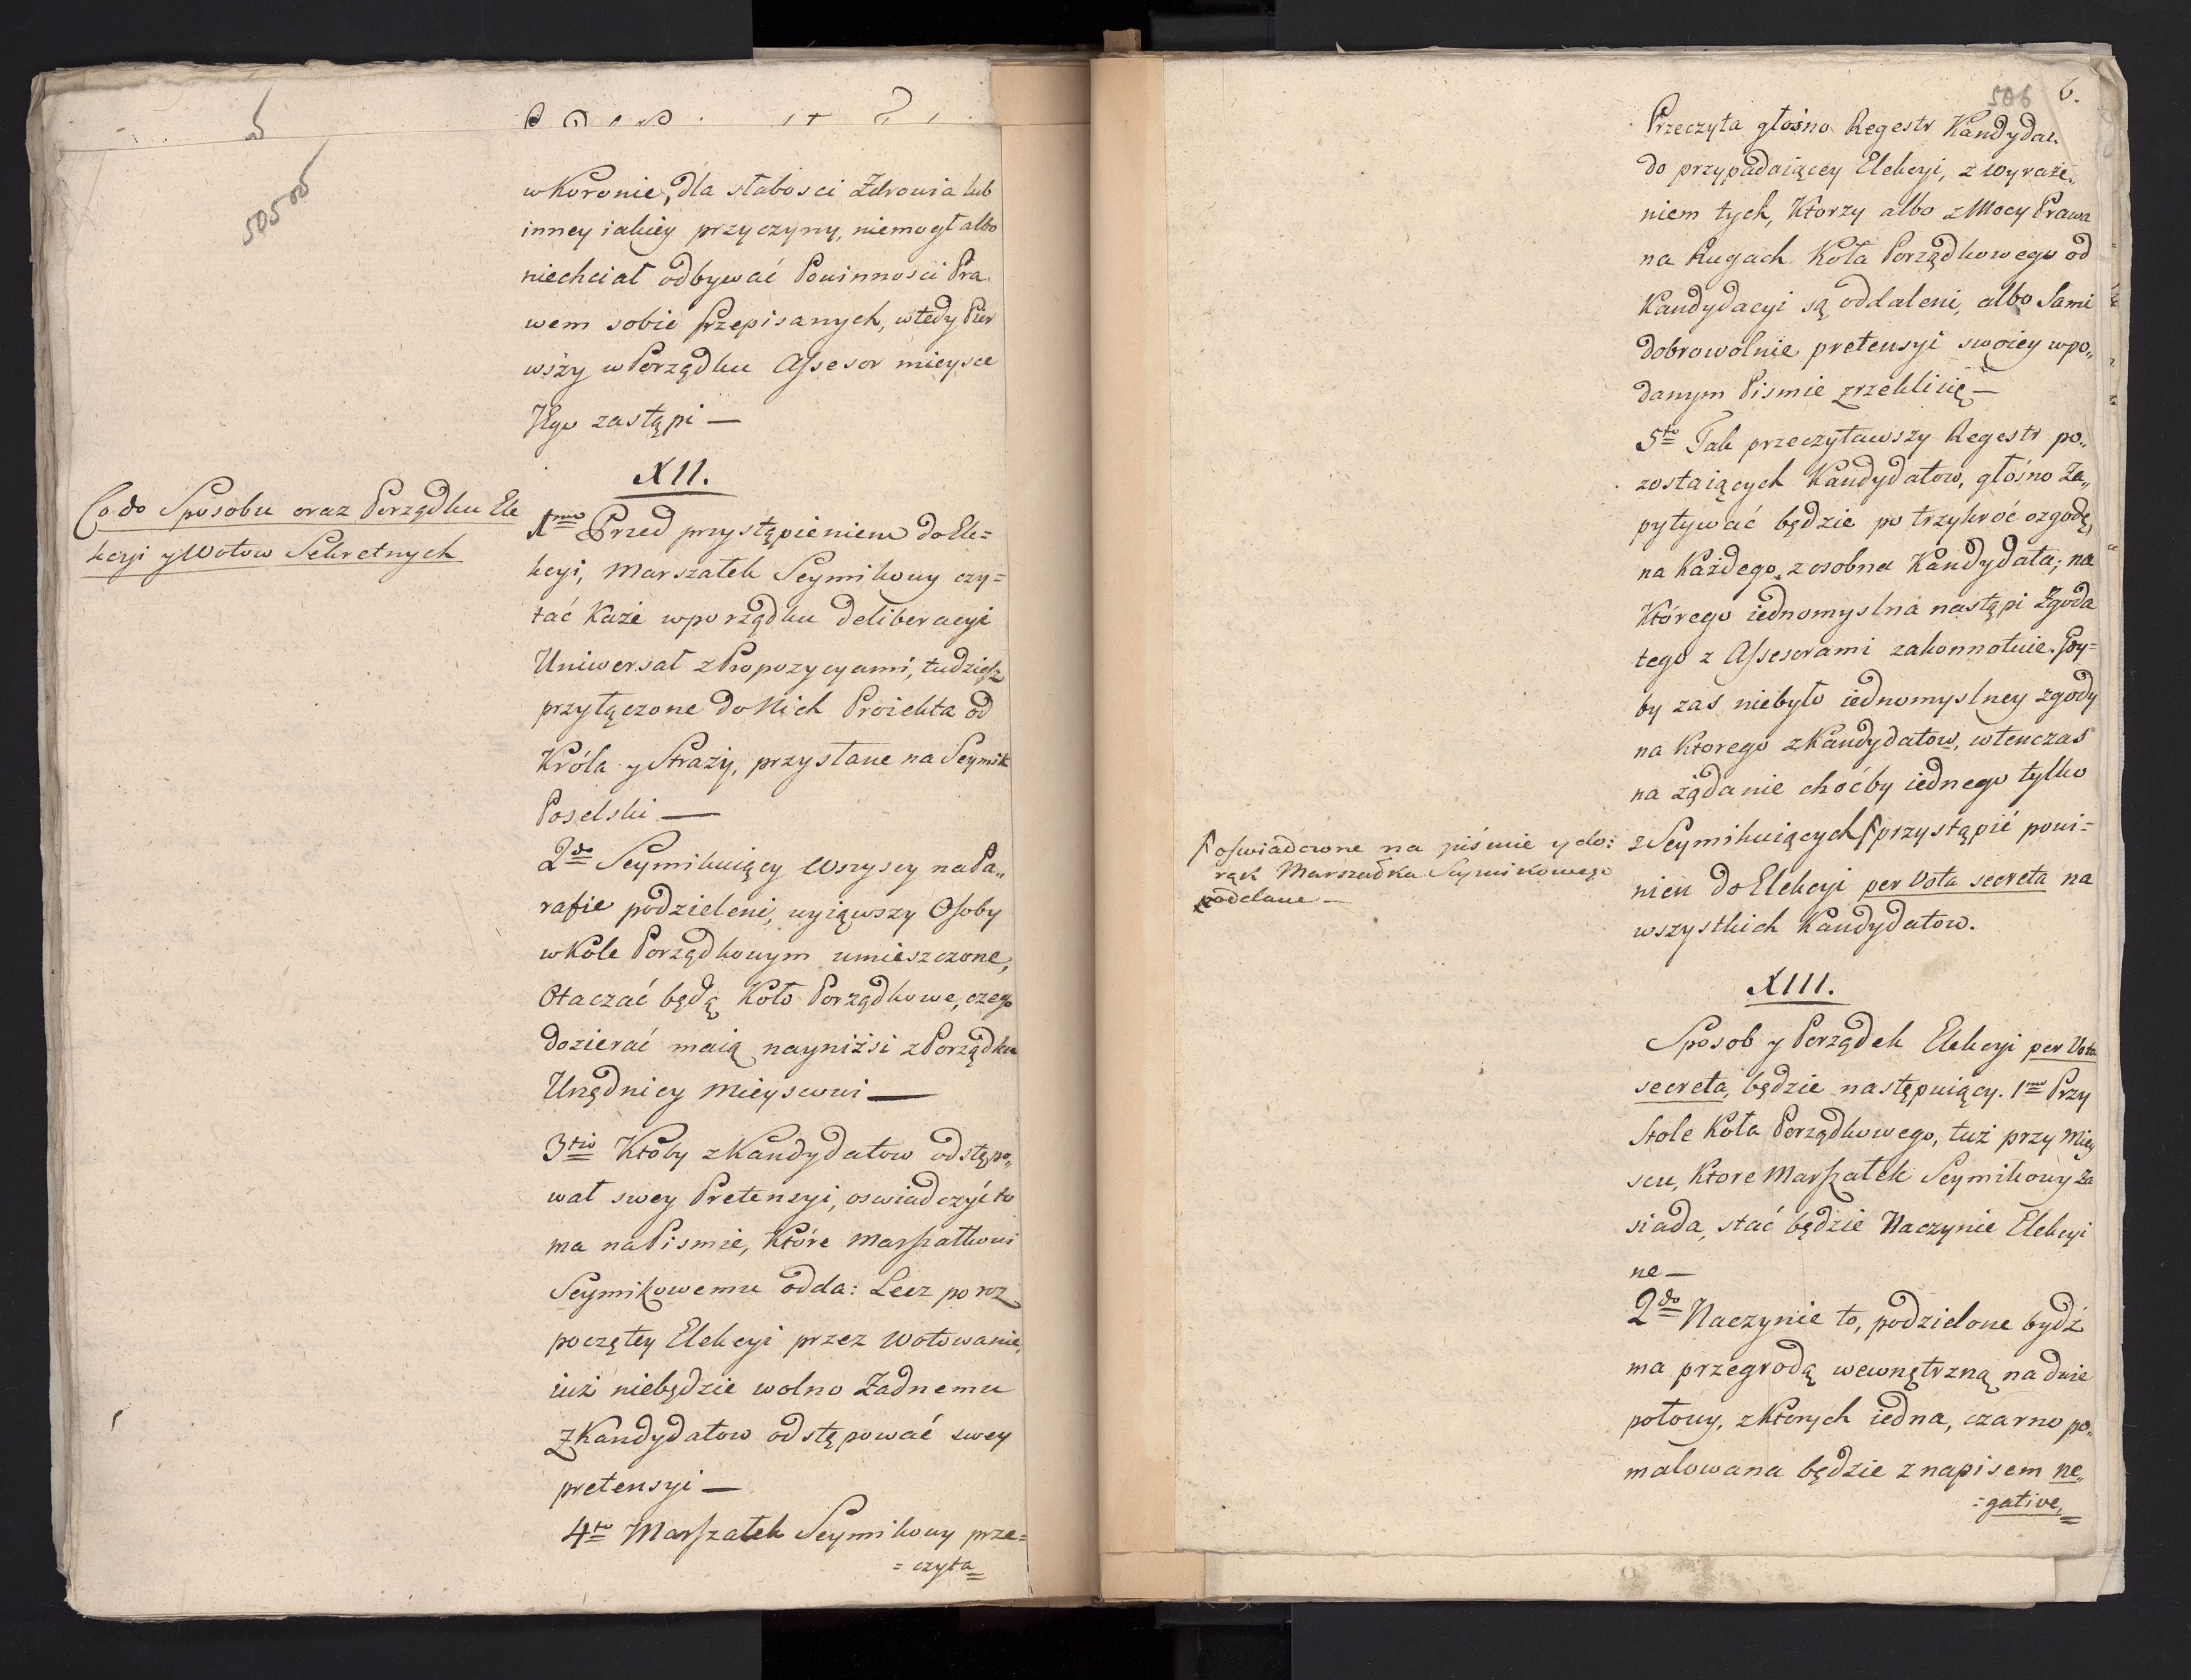 505
w Koronie, dla słabosci Zdrowia lub
inney iakiey przyczyny, niemogł albo
niechciał odbywać Powinnosci Pra
wem sobie przepisanych, wtedy Pier
wszy w Porządku Assesor mieysce
Jego zastąpi —
XII.
Co do Sposobu oraz Porządku Ele
kcyi y Wotow Sekretnych
1mo Przed przystąpieniem do Ele=
kcyi, Marszałek Seymikowy czy=
tać Każe w porządku deliberacyi
Uniwersał z Propozycyami, tudziesz
przyłączone do Nich Proiekta od
Króla y Straży, przysłane na Seymik
Poselski —
2do Seymikuiący Wszyscy na Pa„
rafie podzieleni, wyiąwszy Osoby
w Kole Porządkowym umieszczone,
Otaczać będą Koło Porządkowe, czego
dozierać maią nayniżsi z Porządku
Urzędnicy Mieyscowi —
3tio Ktoby z Kandydatow odstępo„
wał swey Pretensyi, oswiadczyć to
ma na Pismie, Które Marszałkowi
Seymikowemu odda: Lecz po roz
poczętey Elekcyi przez Wotowanie,
iuż niebędzie wolno Żadnemu
z Kandydatow odstępować swey
pretensyi —
4to Marszałek Seymikowy prze=
=czyta
506 6.
Przeczyta głośno Regestr Kandydat.
do przypadaiącey Elekcyi, z wyraże„
niem tych, Ktorzy albo z Mocy Prawa
na Rugach Koła Porządkowego od
Kandydacyi są oddaleni, albo Sami
dobrowolnie pretensyi swoiey w po„
danym Pismie zrzekli się —
5to Tak przeczytawszy Regestr po„
zostaiących Kandydatow, głośno Za„
pytywać będzie po trzykroć o zgodę,
na Każdego z osobna Kandydata; na
Którego iednomyslna nastąpi Zgoda
tego z Assesorami zakonnotuie. Gdy=
by zas niebyło iednomyslney zgody
na Ktorego z Kandydatow, wtenczas
na żądanie choćby iednego tylko
z Seymikuiących przystąpić powi=
oswiadczone na piśmie y do:
rąk Marszałka Seymikowego
oddane —
nien do Elekcyi per Vota secreta na
wszystkich Kandydatow.
XIII.
Sposob y Porządek Elekcyi per Vota
secreta, będzie następuiący. 1mo Przy
Stole Koła Porządkowego, tuż przy Miey
scu, Ktore Marszałek Seymikowy Za
siada, stać będzie Naczynie Elekcyi
ne —
2do Naczynie to, podzielone bydź
ma przegrodą wewnętrzną na dwie
połowy, z Ktorych iedna, czarno po„
malowana będzie z napisem ne„
=gative,